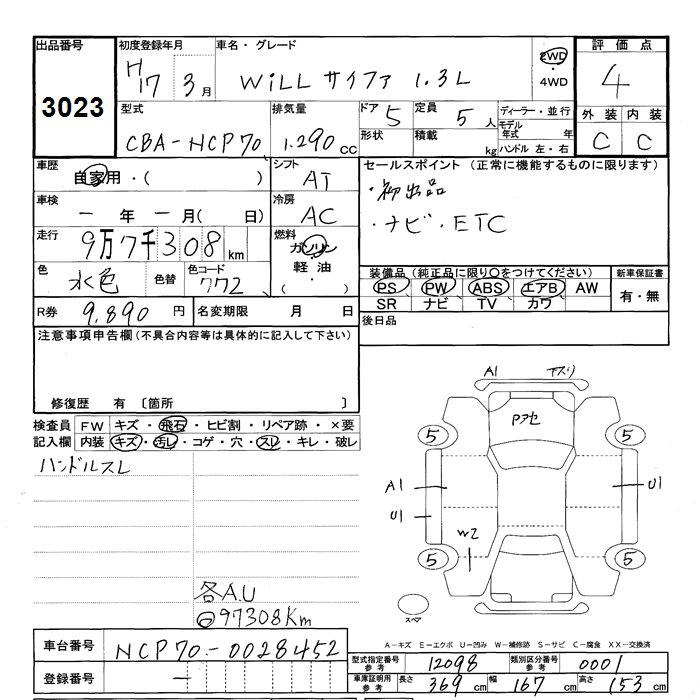 出品番号 初度登録年月 車名・グレード 2WD 評価点
3023 H17 3月 WiLL サイファ 1.3L ・4WD 4
型式 排気量 ドア 5 定員 5人 ディーラー・並行 外装 内装
CBA-NCP70 1.290cc 形状 積載 kg モデル年式 年 C C
ハンドル 左・右
車歴 自家用・( ) シフト AT セールスポイント (正常に機能するものに限ります)
車検 ー年ー月( 日) 冷房 AC ・初出品
走行 9万7千308km 燃料 ガソリン ・ナビ・ETC
色 水色 色替 色コード 772 軽油・( ・ )
装備品(純正品に限り○をつけてください) 新車保証書
PS PW ABS エアB AW 有・無
SR ナビ TV カワ
R券 9,890円 名変期限 月 日 後日品
注意事項申告欄(不具合内容等は具体的に記入して下さい)
修復歴 有 〔箇所 〕
検査員 FW キズ・飛石・ヒビ割・リペア跡・×要
記入欄 内装 キズ・汚レ・コゲ・穴・スレ・キレ・破レ
ハンドルスレ
各A.U
97308Km
A1 下スリ
Pアセ
5 5
A1 U1
U1
W2
5 5
スペア
A-キズ E-エクボ U-凹み W-補修跡 S-サビ C-腐食 XX-交換済
車台番号 NCP70-0028452
登録番号 ー
型式指定番号 参考 12098 類別区分番号 参考 0001
車庫証明用 参考 長さ 369cm 幅 167cm 高さ 153cm